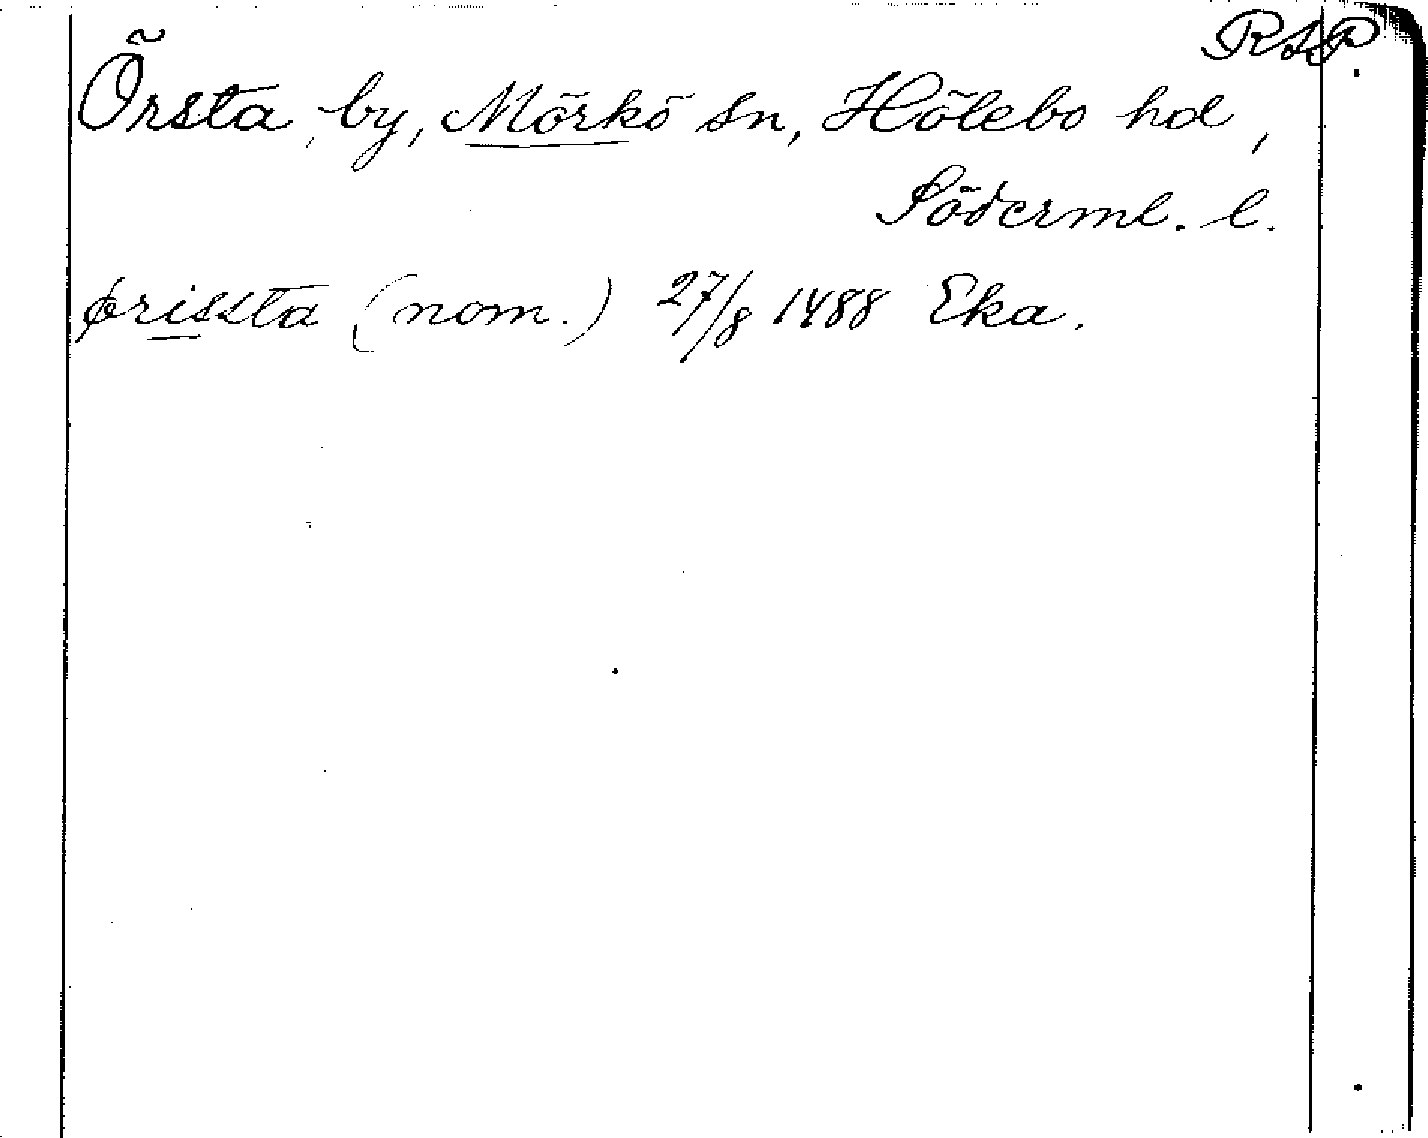 RAP
Örsta, by, Mörkö sn, Hölebo hd,
Söderml. l.
ørissta (nom.) 27/8 1488 Eka.